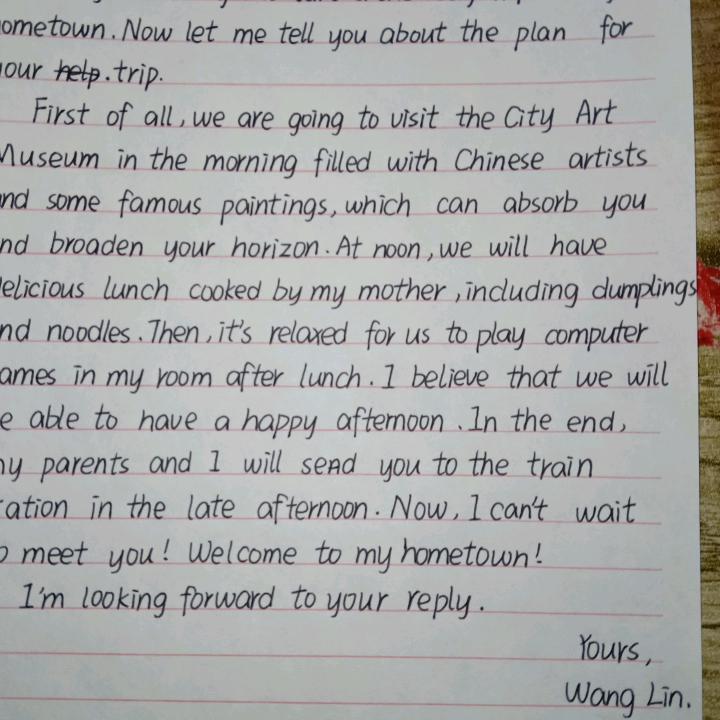 ometown. Now let me tell you about the plan for
our help. trip.
First of all, we are going to visit the City Art
Museum in the morning filled with Chinese artists
nd some famous paintings, which can absorb you
nd broaden your horizon. At noon, we will have
elicious lunch cooked by my mother, including dumplings
nd noodles. Then, it's relaxed for us to play computer
ames in my room after lunch. I believe that we will
e able to have a happy afternoon. In the end,
my parents and I will send you to the train
ation in the late afternoon. Now, I can't wait
o meet you! Welcome to my hometown!
I'm looking forward to your reply.
Yours,
Wang Lin.